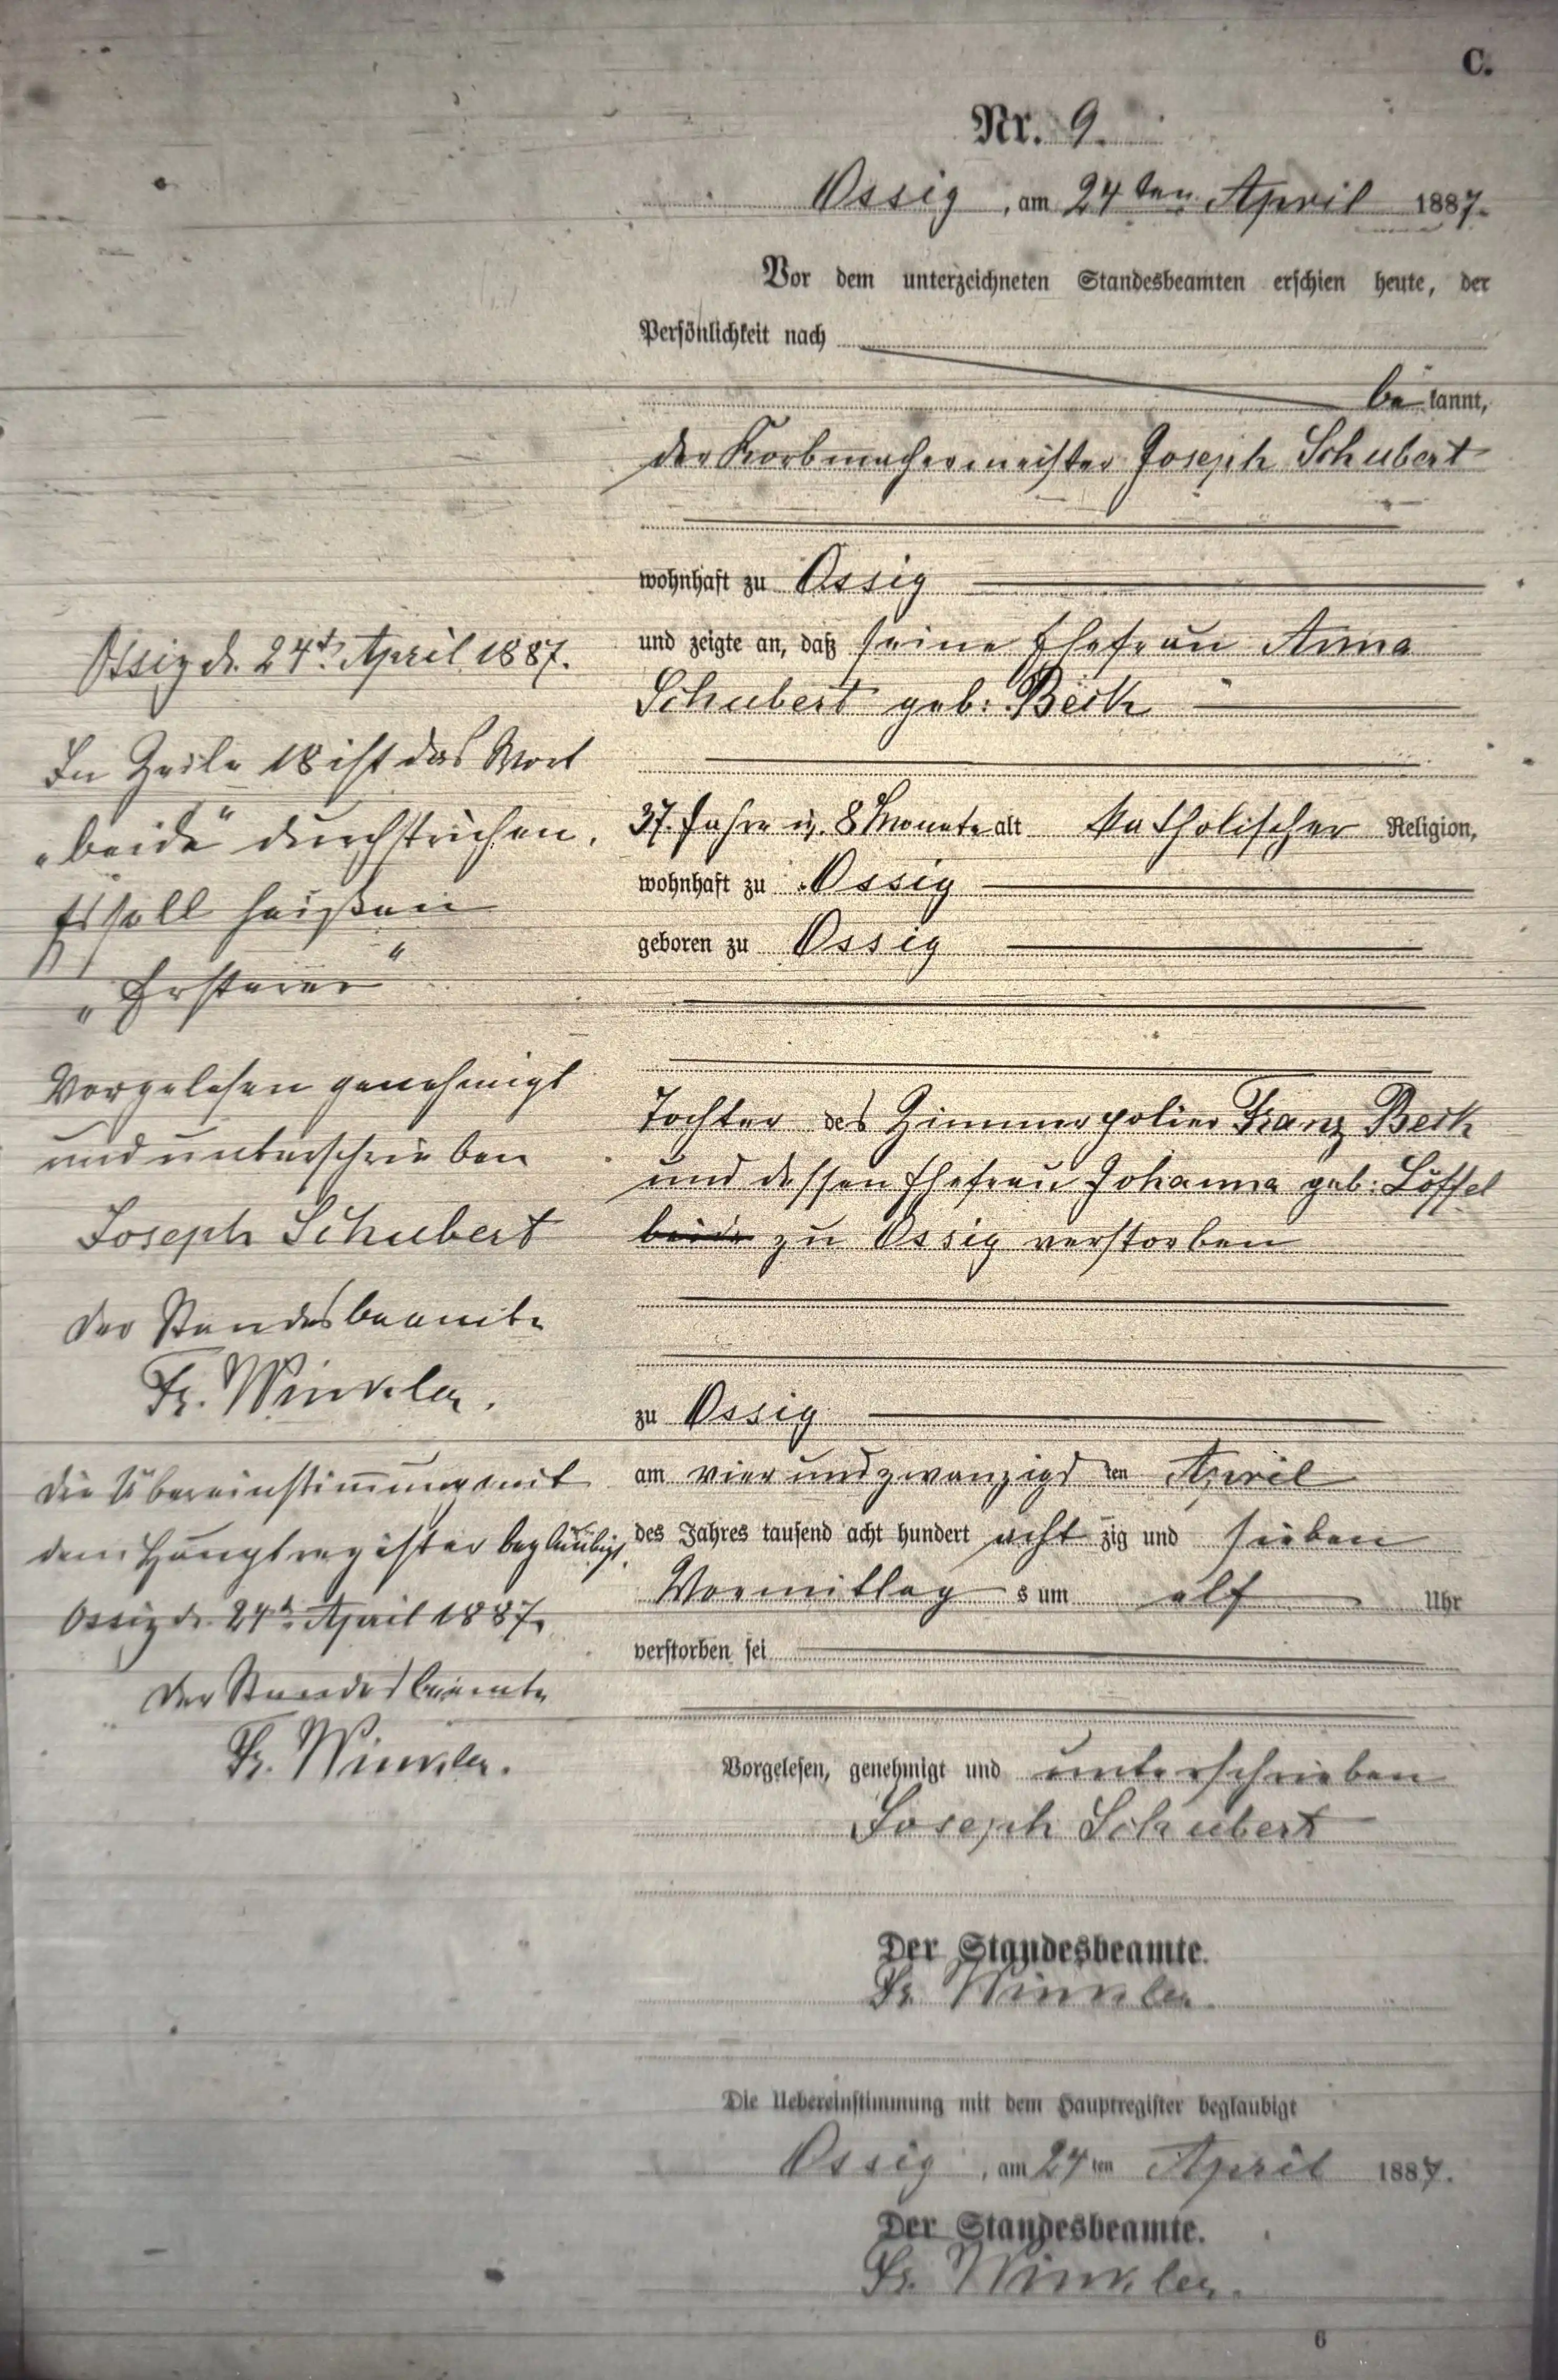 C.
Nr. 9.
Ossig, am 24ten April 1887.
Vor dem unterzeichneten Standesbeamten erschien heute, der
Persönlichkeit nach
bekannt,
der Korbmachermeister Joseph Schubert
wohnhaft zu Ossig
und zeigte an, daß seine Ehefrau Anna
Schubert geb: Beck
37. Jahre u. 8 Monate alt katholischer Religion,
wohnhaft zu Ossig
geboren zu Ossig
Tochter des Zimmerpolier Franz Beck
und dessen Ehefrau Johanna geb: Löffel
beide zu Ossig verstorben
zu Ossig
am vierundzwanzigsten April
des Jahres tausend acht hundert achtzig und sieben
Vormittags um elf Uhr
verstorben sei
Vorgelesen, genehmigt und unterschrieben
Joseph Schubert
Der Standesbeamte.
Fr. Winkler.
Die Uebereinstimmung mit dem Hauptregister beglaubigt
Ossig, am 24ten April 1887.
Der Standesbeamte.
Fr. Winkler.
6
Ossig d. 24t. April 1887.
In Zeile 18 ist das Wort
„beide“ durchstrichen.
Es soll heißen
„Ersterer“
Vorgelesen genehmigt
und unterschrieben
Joseph Schubert
Der Standesbeamte
Fr. Winkler.
Die Übereinstimmung mit
dem Hauptregister beglaubigt.
Ossig d. 24t. April 1887.
Der Standesbeamte
Fr. Winkler.